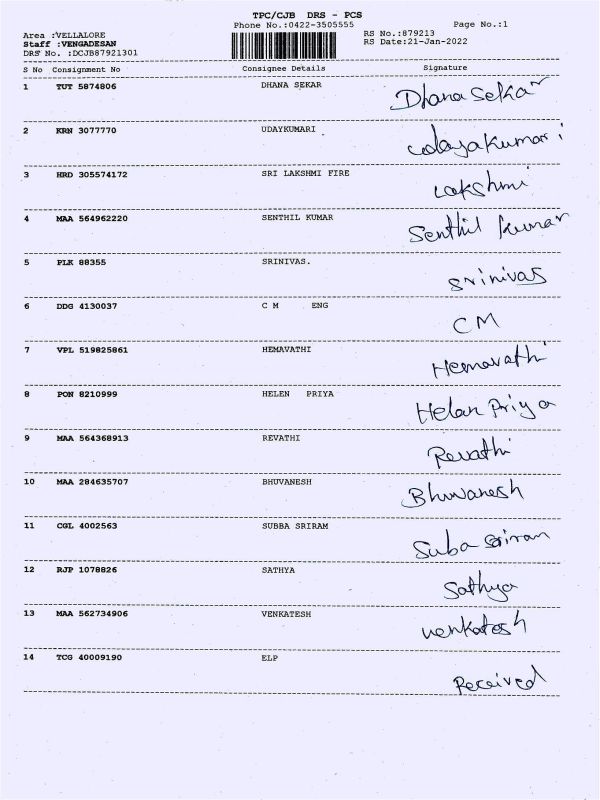 TPC/CJB DRS - PCS
Phone No.:0422-3505555 Page No.:1
Area :VELLALORE RS No.:879213
Staff :VENGADESAN RS Date:21-Jan-2022
DRS No. :DCJB87921301
S No Consignment No Consignee Details Signature
1 TUT 5874806 DHANA SEKAR Dhana Sekar
2 KRN 3077770 UDAYKUMARI Udayakumari
3 HRD 305574172 SRI LAKSHMI FIRE Lakshmi
4 MAA 564962220 SENTHIL KUMAR Senthil kumar
5 PLK 88355 SRINIVAS. Srinivas
6 DDG 4130037 C M ENG CM
7 VPL 519825861 HEMAVATHI Hemavathi
8 PON 8210999 HELEN PRIYA Helan Priya
9 MAA 564368913 REVATHI Revathi
10 MAA 284635707 BHUVANESH Bhuvanesh
11 CGL 4002563 SUBBA SRIRAM Suba sriram
12 RJP 1078826 SATHYA Sathya
13 MAA 562734906 VENKATESH venkatesh
14 TCG 40009190 ELP Received